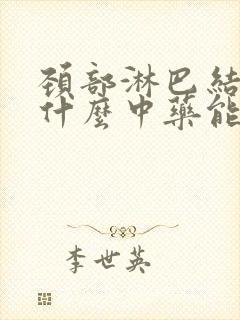 頚部淋巴結
什麼中藥能
李世英